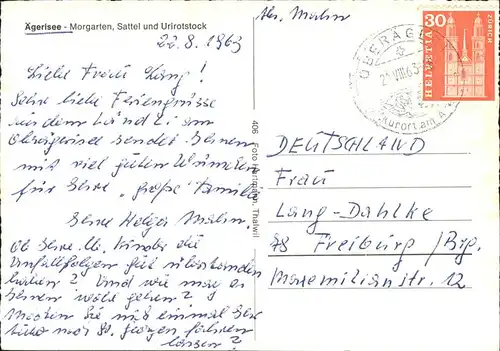 Ägerisee - Morgarten, Sattel und Urirotstock
Abs. Malin
22. 8. 1963
Liebe Frau Lang!
Sehr liebe Feriengrüsse
aus dem Ländli am
Ägerisee sendet Ihnen
mit viel guten Wünschen
für Ihre "große" Familie
Ihre Helga Malin.
Ob Ihre Kinder die
Unfallfolgen gut überstanden
haben? Und wie mag es
Ihnen wohl gehen?
Möchten Sie mich einmal
lassen?
406 Foto Thalwil
HELVETIA
30
ZÜRICH
OBERÄGERI
VIII.63
Kurort am
DEUTSCHLAND
Frau
Lang-Dahlke
78 Freiburg/Brg.
Maximilianstr. 12